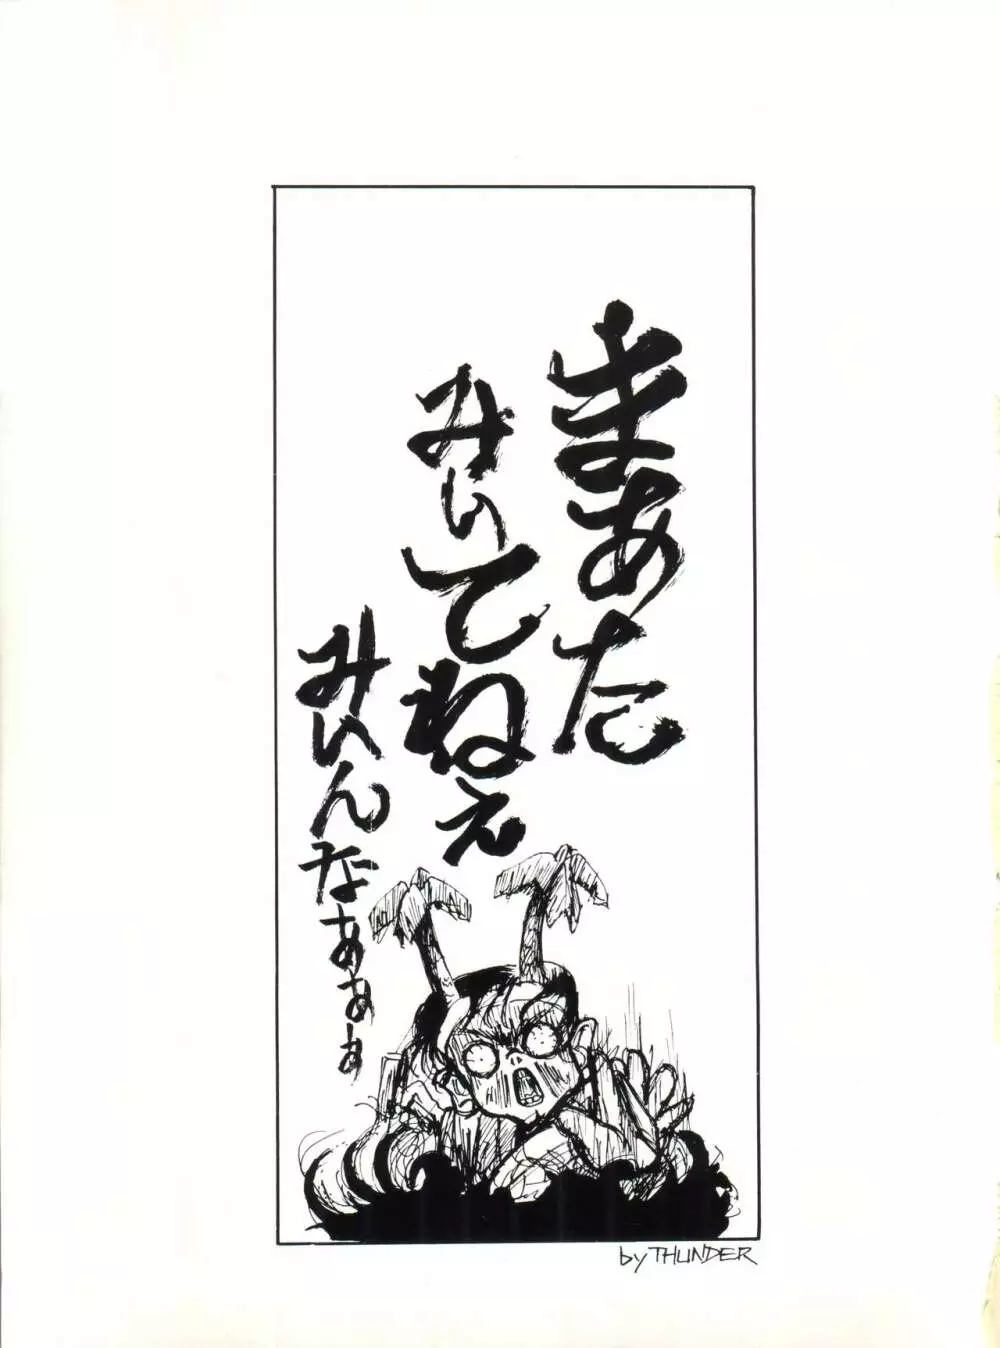 まあた
みいてねえ
みいんなあああ
by THUNDER